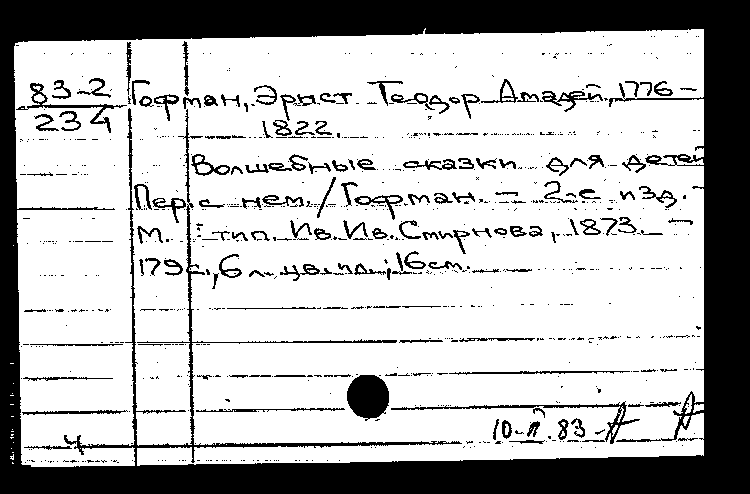 83-2
234
Гофман, Эрнст Теодор Амадей, 1776-
1822.
Волшебные сказки для детей
Пер. с нем. / Гофман. - 2-е изд. -
М. : тип. Ив. Ив. Смирнова, 1873. -
179 с., 6 л. цв. ил.; 16 см.
4
10-II.83-